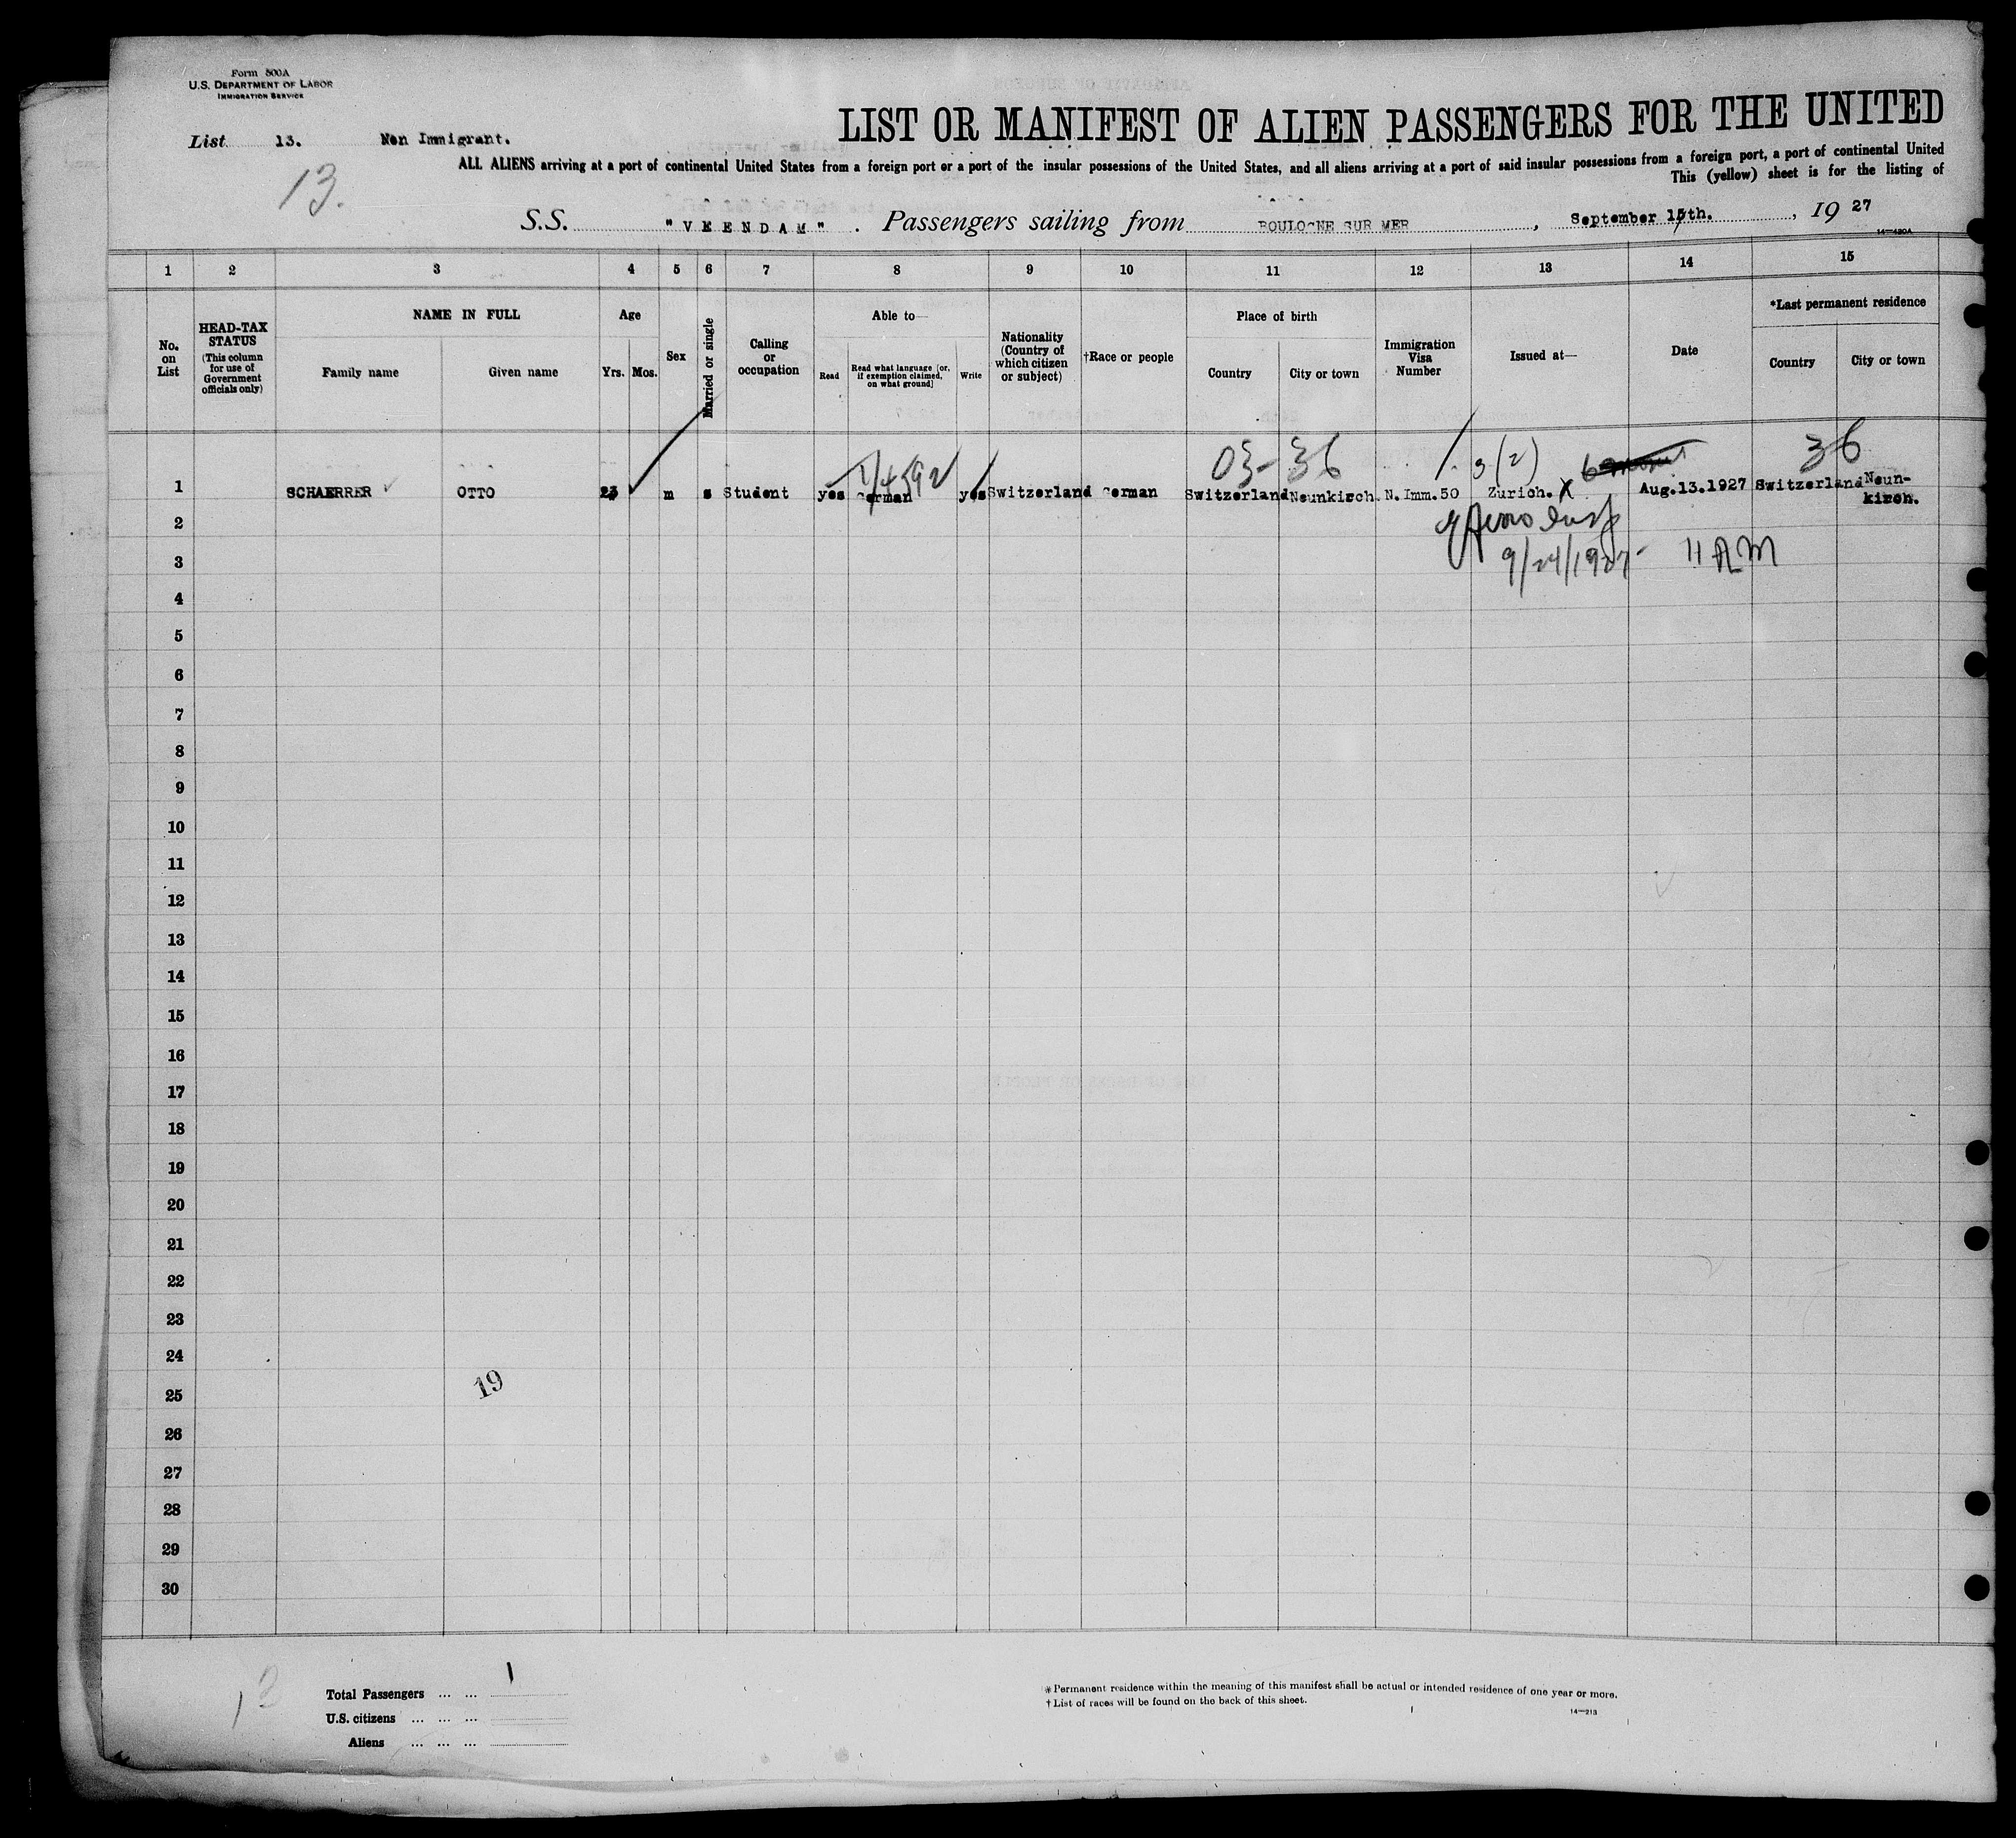 Form 500A
U.S. DEPARTMENT OF LABOR
IMMIGRATION SERVICE
List 13. Non Immigrant.
13.
LIST OR MANIFEST OF ALIEN PASSENGERS FOR THE UNITED
ALL ALIENS arriving at a port of continental United States from a foreign port or a port of the insular possessions of the United States, and all aliens arriving at a port of said insular possessions from a foreign port, a port of continental United
This (yellow) sheet is for the listing of
S.S. "VEENDAM". Passengers sailing from BOULOGNE SUR MER, September 15th., 1927
14—420A
1 2 3 4 5 6 7 8 9 10 11 12 13 14 15
No. on List
HEAD-TAX STATUS
(This column for use of Government officials only)
NAME IN FULL
Family name
Given name
Age
Yrs. Mos.
Sex
Married or single
Calling or occupation
Able to—
Read
Read what language [or, if exemption claimed, on what ground]
Write
Nationality (Country of which citizen or subject)
†Race or people
Place of birth
Country
City or town
Immigration Visa Number
Issued at—
Date
*Last permanent residence
Country
City or town
03-36
3(2)
36
1 SCHAERRER OTTO 23 m s Student yes German yes Switzerland German Switzerland Neunkirch. N.Imm.50 Zurich. X Aug.13.1927 Switzerland Neun-
kirch.
2
9/24/1927- 11 AM
3
4
5
6
7
8
9
10
11
12
13
14
15
16
17
18
19
20
21
22
23
24
19
25
26
27
28
29
30
Total Passengers ... ... 1
U.S. citizens ... ... ...
Aliens ... ... ...
*Permanent residence within the meaning of this manifest shall be actual or intended residence of one year or more.
†List of races will be found on the back of this sheet.
14—213